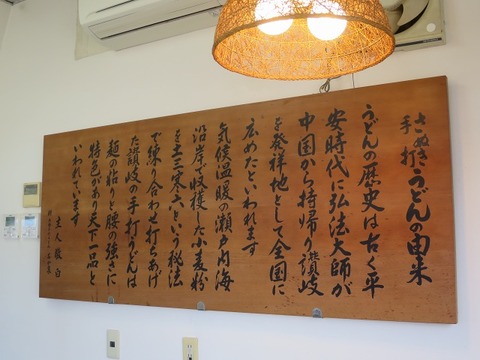 さぬき手打うどんの由来
うどんの歴史は古く平
安時代に弘法大師が
中国から持帰り讃岐
を発祥地として全国に
広めたといわれます
気候温暖の瀬戸内海
沿岸で收穫した小麦粉
を土三寒六という秘法
で練り合わせ打ちあげ
た讃岐の手打うどんは
麺の粘りと腰の強さに
特色があり天下一品と
いわれています
主人敬白